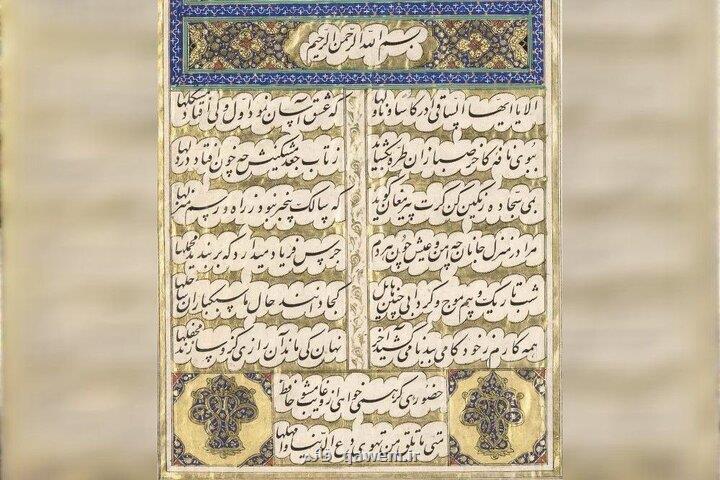 بسم الله الرحمن الرحیم
الا یا ایها الساقی ادر کاسا و ناولها که عشق آسان نمود اول ولی افتاد مشکلها
ببوی نافه کاخر صبا زان طره بگشاید ز تاب جعد مشکینش چه خون افتاد در دلها
بمی سجاده رنگین کن گرت پیر مغان گوید که سالک بیخبر نبود ز راه و رسم منزلها
مرا در منزل جانان چه امن و عیش چون هر دم جرس فریاد میدارد که بربندید محملها
شب تاریک و بیم موج و گردابی چنین هایل کجا دانند حال ما سبکباران ساحلها
همه کارم ز خود کامی ببدنامی کشید آخر نهان کی ماند آن رازی کزو سازند محفلها
حضوری گر همی خواهی ازو غایب مشو حافظ
متی ما تلق من تهوی دع الدنیا و اهملها
qawem.ir